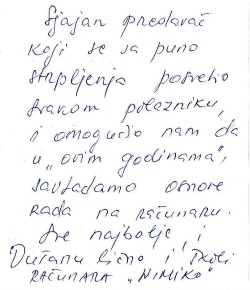 Sjajan predavač
koji se sa puno
strpljenja posvetio
svakom polazniku,
i omogućio nam da
u „ovim godinama",
savladamo osnove
rada na računaru.
Sve najbolje i
Dušanu lično i školi
RAČUNARA „NIMIKO"